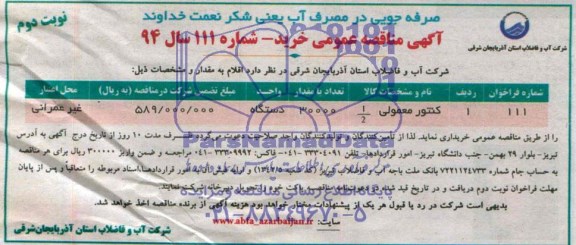 صرفه جویی در مصرف آب یعنی شکر نعمت خداوند
نوبت دوم
آگهی مناقصه عمومی خرید - شماره ۱۱۱ سال ۹۴
شرکت آب و فاضلاب استان آذربایجان شرقی
شرکت آب و فاضلاب استان آذربایجان شرقی در نظر دارد اقلام به مقدار و مشخصات ذیل:
شماره فراخوان ردیف نام و مشخصات کالا تعداد یا مقدار واحد مبلغ تضمین شرکت در مناقصه (به ریال) محل اعتبار
۱۱۱ ۱ کنتور معمولی ۱/۲ ۳۰۰۰۰ دستگاه ۵۸۹/۰۰۰/۰۰۰ غیر عمرانی
را از طریق مناقصه عمومی خریداری نماید. لذا از تأمین کنندگان واجد صلاحیت ظرف مدت ۱۰ روز از تاریخ درج آگهی به آدرس
تبریز- بلوار ۲۹ بهمن- جنب دانشگاه تبریز- امور قراردادها- تلفن ۰۴۱-۳۳۳۰۴۰۹۱ فاکس: مراجعه و ضمن واریز ۳۰۰۰۰۰ ریال برای هر مناقصه
به حساب جام شماره بانک ملت باجه آب و فاضلاب تبریز امور قراردادها اسناد مربوط را متعاقبا و پس از پایان
مهلت فراخوان نوبت دوم دریافت و در تاریخ قید شده پاکت خود را تحویل دبیرخانه شرکت نمایند.
بدیهی است شرکت در رد یا قبول هر یک از پیشنهادات مختار خواهد بود هزینه آگهی از برنده مناقصه اخذ خواهد شد.
سایت: www.abfa_azarbaijan.ir
شرکت آب و فاضلاب استان آذربایجان شرقی
ParsNamadData
پایگاه اطلاع رسانی مناقصه و مزایده
۰۲۱-۸۸۳۴۹۶۷۰-۵